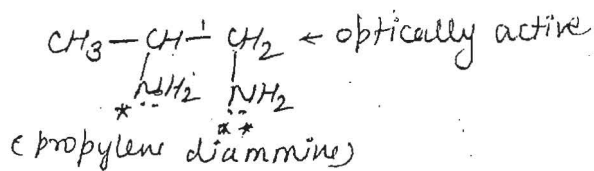 CH3 — CH — CH2 ← optically active
NH2 NH2
* **
(propylene diammine)